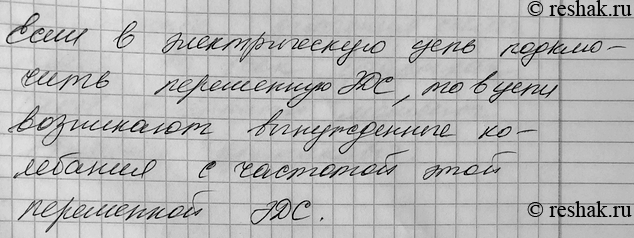 © reshak.ru
Если в электрическую цепь подклю-
чить переменную ЭДС, то в цепи
возникают вынужденные ко-
лебания с частотой этой
переменной ЭДС.
© reshak.ru